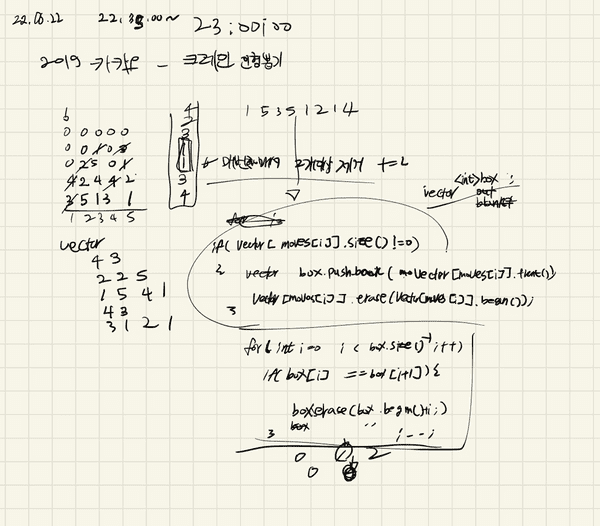 22.08.22 22:35:00~ 23:00:00
2019 카카오 - 크레인 인형뽑기
b
0 0 0 0 0
0 0 1 0 3
0 2 5 0 1
4 2 4 4 2
3 5 1 3 1
1 2 3 4 5
4
3
1
1
3
4
1 5 3 5 1 2 1 4
2개대상 제거 += 2
vector <int> box ;
vector
4 3
2 2 5
1 5 4 1
4 3
3 1 2 1
if( vector[moves[i]].size() !=0)
vector box.push.back( movector[moves[i]].front())
vector[moves[i]].erase(vector[moves[i]].begin());
for( int i=0 i < box.size()-1 ; i++)
if(box[i] == box[i+1]) {
box.erase(box.begin()+i;)
box " i--;
0 1 2
0